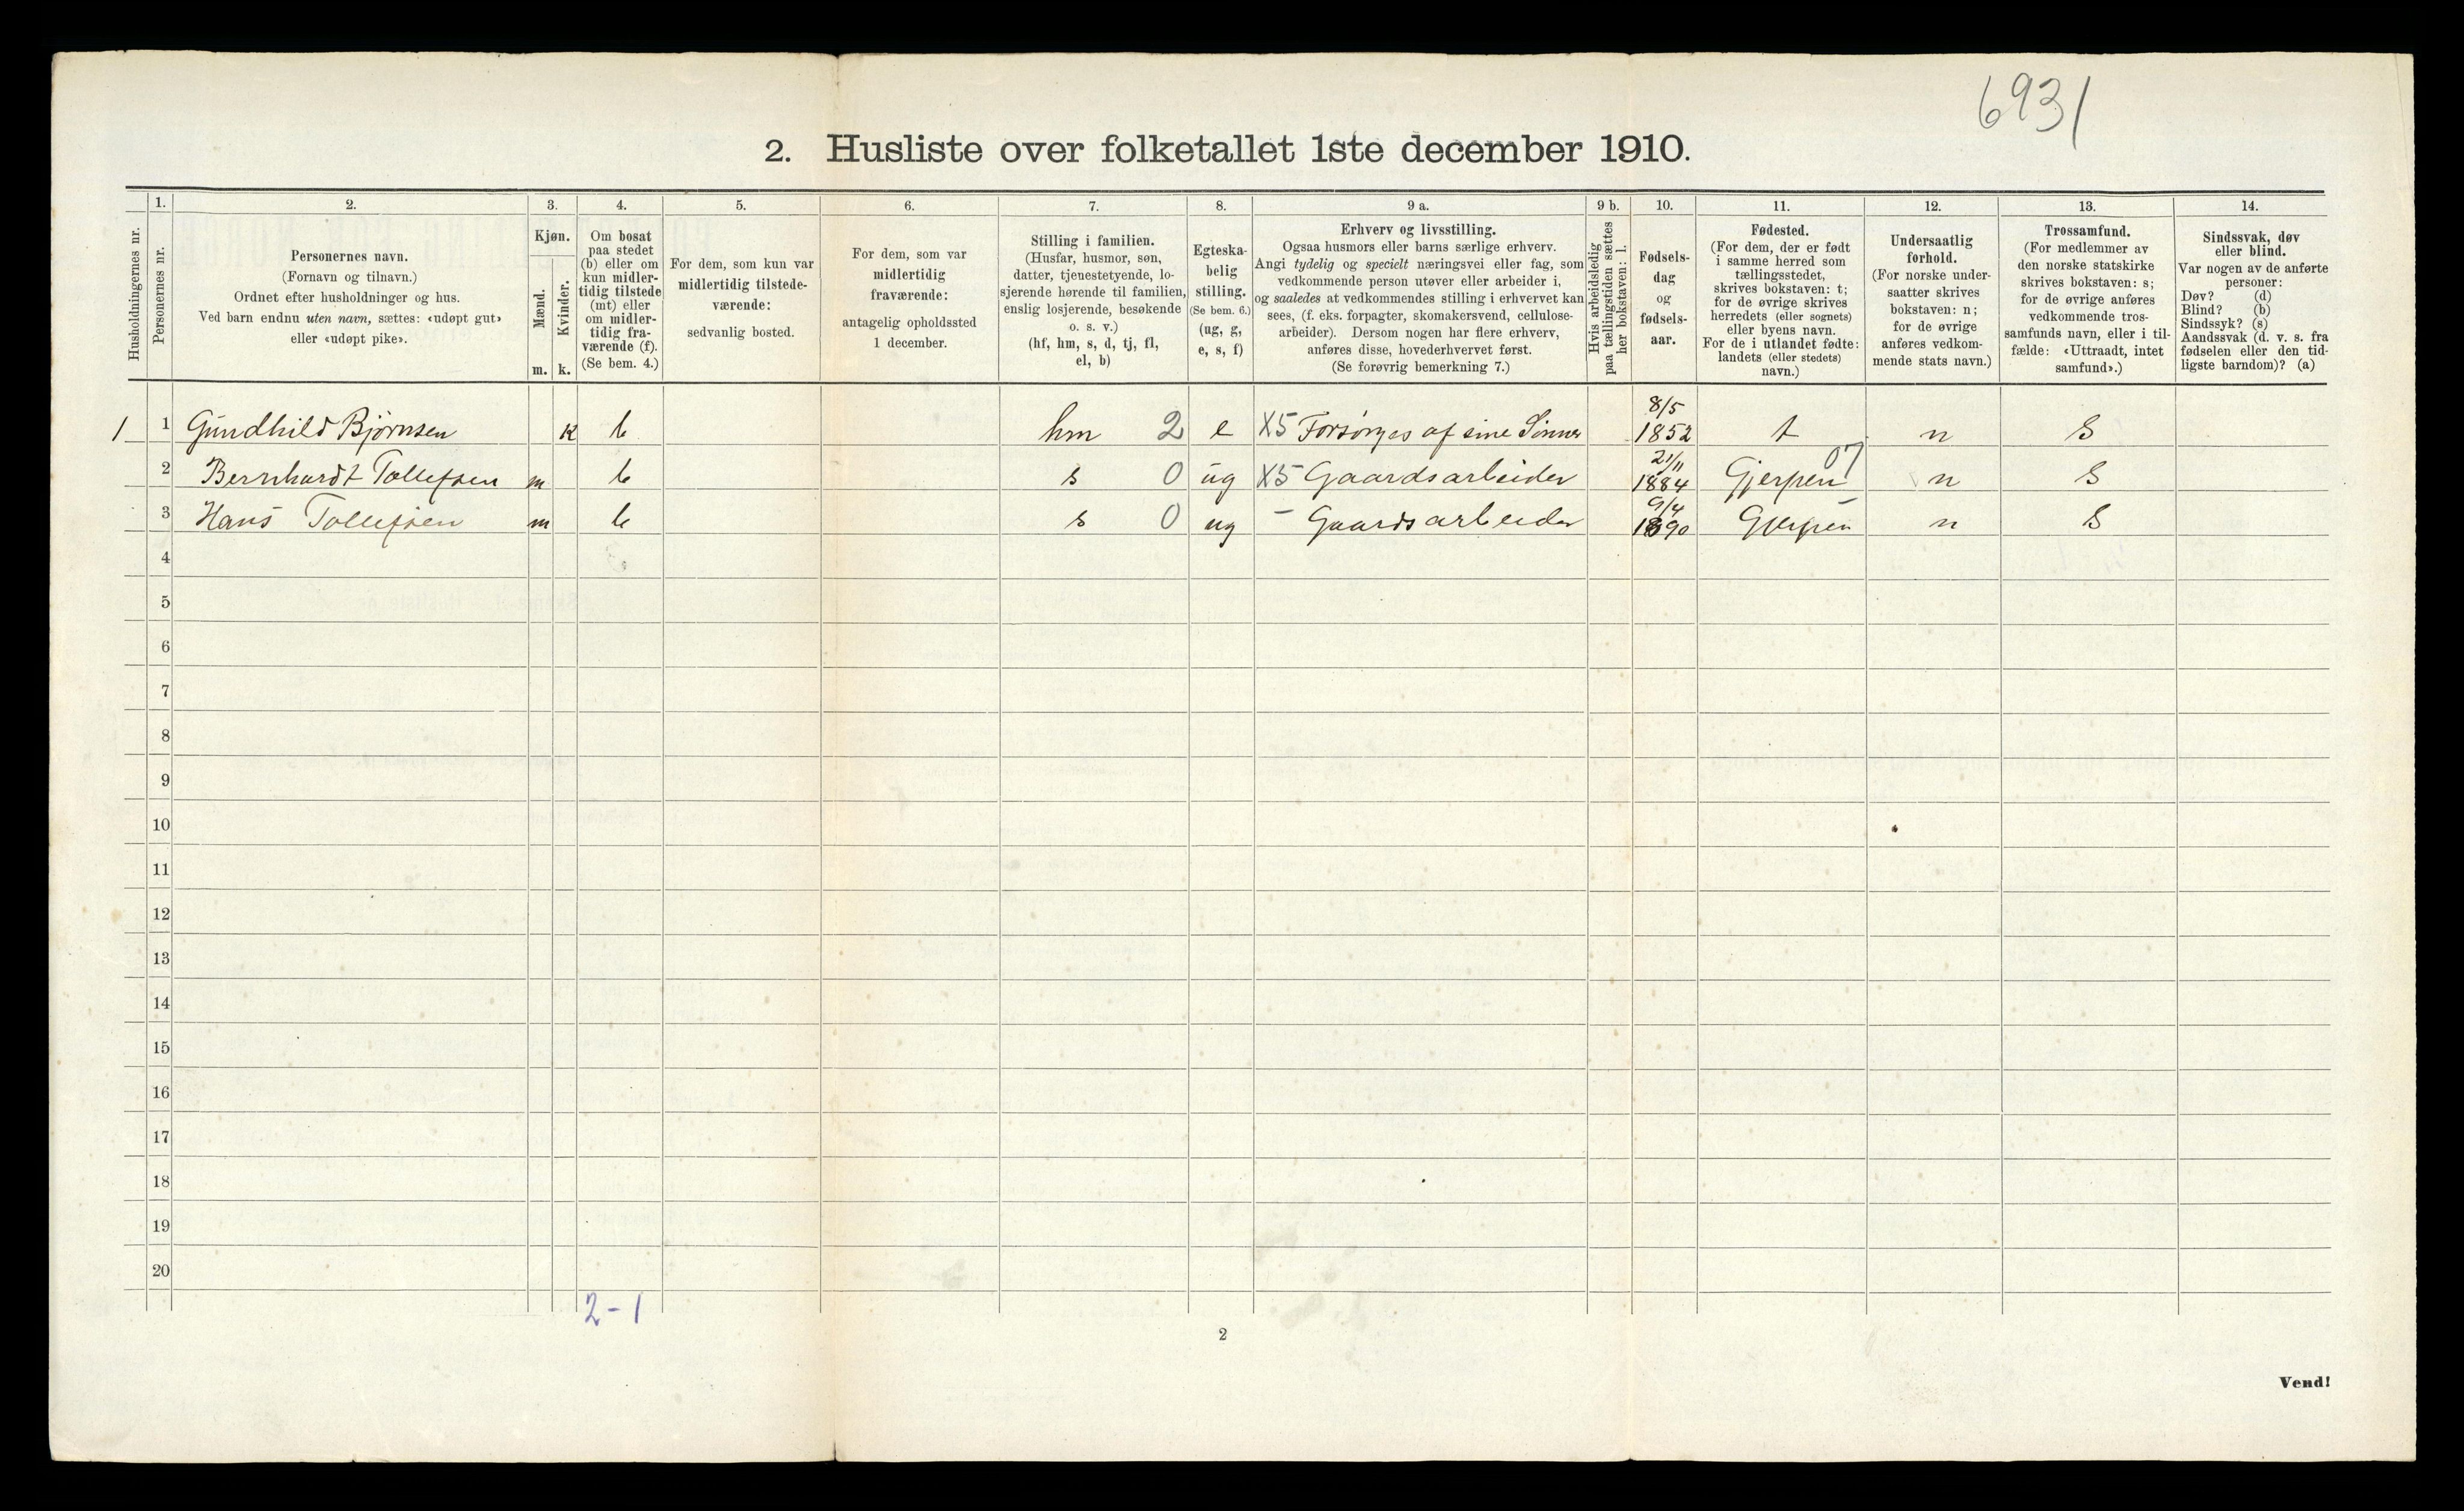 6931
2. Husliste over folketallet 1ste december 1910.
Husholdningernes nr.
1.
Personernes nr.
2.
Personernes navn.
(Fornavn og tilnavn.)
Ordnet efter husholdninger og hus.
Ved barn endnu uten navn, sættes: «udøpt gut»
eller «udøpt pike».
3.
Kjøn.
Mænd.
m.
Kvinder.
k.
4.
Om bosat
paa stedet
(b) eller om
kun midler-
tidig tilstede
(mt) eller
om midler-
tidig fra-
værende (f).
(Se bem. 4.)
5.
For dem, som kun var
midlertidig tilstede-
værende:
sedvanlig bosted.
6.
For dem, som var
midlertidig
fraværende:
antagelig opholdssted
1 december.
7.
Stilling i familien.
(Husfar, husmor, søn,
datter, tjenestetyende, lo-
sjerende hørende til familien,
enslig losjerende, besøkende
o. s. v.)
(hf, hm, s, d, tj, fl,
el, b)
8.
Egteska-
belig
stilling.
(Se bem. 6.)
(ug, g,
e, s, f)
9 a.
Erhverv og livsstilling.
Ogsaa husmors eller barns særlige erhverv.
Angi tydelig og specielt næringsvei eller fag, som
vedkommende person utøver eller arbeider i,
og saaledes at vedkommendes stilling i erhvervet kan
sees, (f. eks. forpagter, skomakersvend, cellulose-
arbeider). Dersom nogen har flere erhverv,
anføres disse, hovederhvervet først.
(Se forøvrig bemerkning 7.)
9 b.
Hvis arbeidsledig
paa tællingstiden sættes
her bokstaven: l.
10.
Fødsels-
dag
og
fødsels-
aar.
11.
Fødested.
(For dem, der er født
i samme herred som
tællingsstedet,
skrives bokstaven: t;
for de øvrige skrives
herredets (eller sognets)
eller byens navn.
For de i utlandet fødte:
landets (eller stedets)
navn.)
12.
Undersaatlig
forhold.
(For norske under-
saatter skrives
bokstaven: n;
for de øvrige
anføres vedkom-
mende stats navn.)
13.
Trossamfund.
(For medlemmer av
den norske statskirke
skrives bokstaven: s;
for de øvrige anføres
vedkommende tros-
samfunds navn, eller i til-
fælde: «Uttraadt, intet
samfund».)
14.
Sindssvak, døv
eller blind.
Var nogen av de anførte
personer:
Døv? (d)
Blind? (b)
Sindssyk? (s)
Aandssvak (d. v. s. fra
fødselen eller den tid-
ligste barndom)? (a)
1 1 Gundhild Bjørnsen k b hm 2 e X5 Forsørges af sine Sønner 8/5 1852 t n S
2 Bernhardt Tollefsen m b s 0 ug X5 Gaardsarbeider 21/11 1884 Gjerpen 07 n S
3 Hans Tollefsen m b s 0 ug – Gaardsarbeider 9/4 1890 Gjerpen – n S
4
5
6
7
8
9
10
11
12
13
14
15
16
17
18
19
20
2-1
2
Vend!